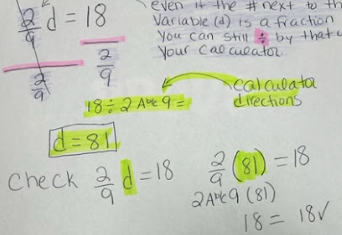 2/9 d = 18
2/9 2/9
even if the # next to th
Variable (d) is a fraction
You can still ÷ by that
your calculator.
calculata
directions
18 ÷ 2 Abc 9 =
d = 81
Check 2/9 d = 18
2/9 (81) = 18
2 Abc 9 (81)
18 = 18✓